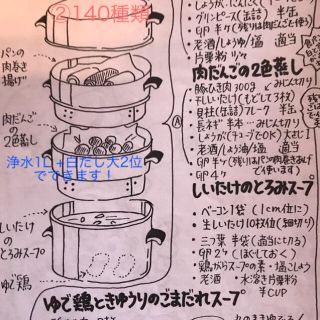 ②140種類
パンの
肉巻き
揚げ
肉だんご
の2色
蒸し
浄水1L＋白だし大2位
でできます！
しいたけ
の
とろみスープ
ゆで鶏
Ⓐ
グリンピース(缶詰) 半缶
老酒/しょうゆ/塩 適当
片栗粉 少々
肉だんごの2色蒸し
豚ひき肉 300g みじん切り
干しいたけ(もどして3枚)
貝柱(缶詰)フレーク 半缶
長ネギ 半本 みじん切り
しょうが(チューブでOK) 大さじ1
老酒/しょうゆ/塩 適当
卵 4ケ
しいたけのとろみスープ
ベーコン1袋(1cm位に)
生しいたけ10枚位(細切り)
三つ葉 半袋(適当に切る)
卵2ケ(ほぐしておく)
鶏がらスープの素・塩こしょう
老酒 ・水溶き片栗粉
半CUP
ゆで鶏ときゅうりのごまだれスープ